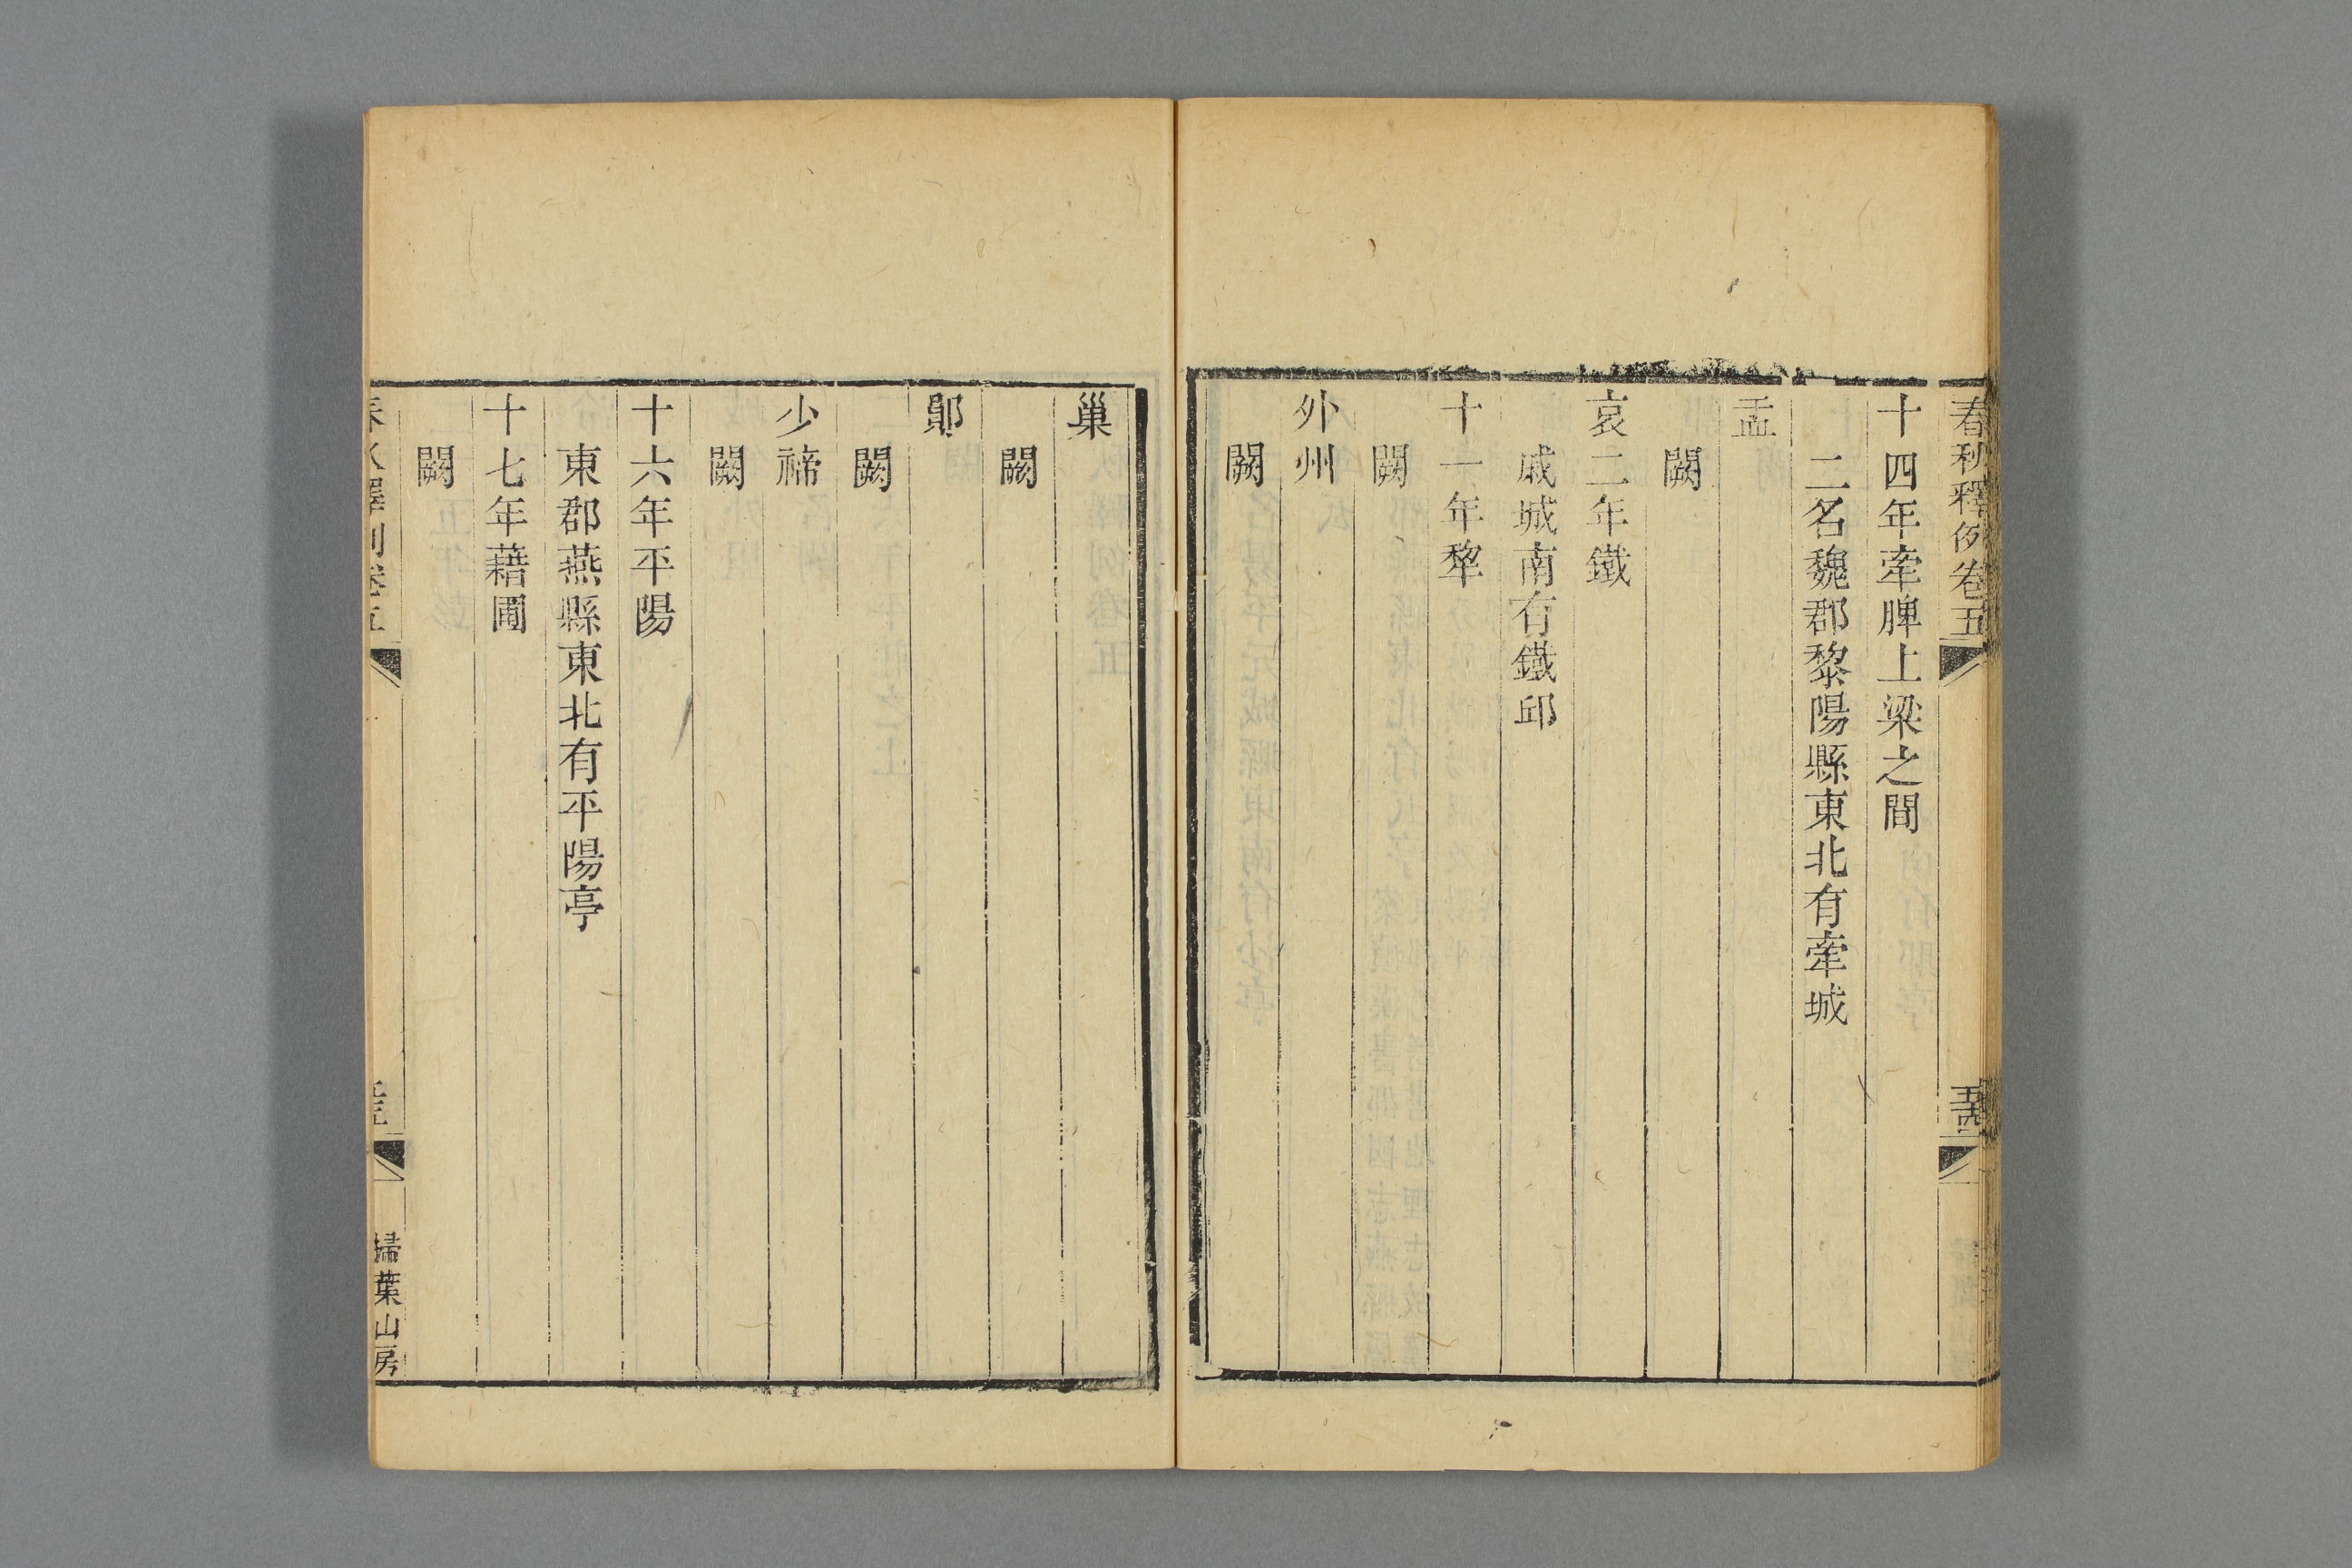 春秋釋例卷五
十四年牽脾上梁之間
二名魏郡黎陽縣東北有牽城
盂
闕
哀二年鐵
戚城南有鐵邱
十一年犂
闕
外州
闕
巢
闕
鄖
闕
少禘
闕
十六年平陽
東郡燕縣東北有平陽亭
十七年藉圃
闕
春秋釋例卷五
掃葉山房